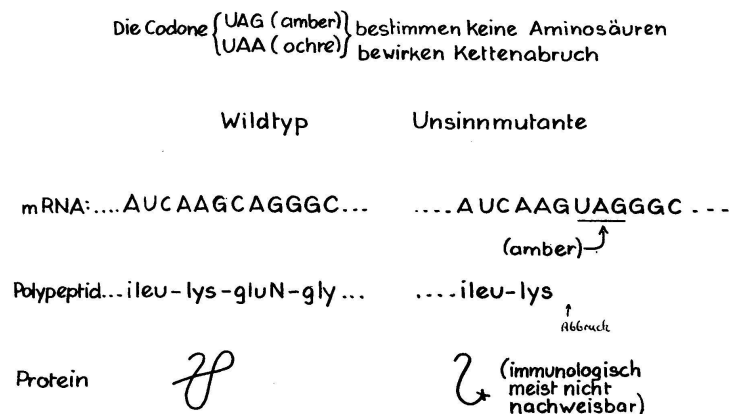 Die Codone {UAG (amber)} bestimmen keine Aminosäuren
{UAA (ochre)} bewirken Kettenabruch
Wildtyp Unsinnmutante
mRNA:....AUCAAGCAGGGC... ....AUCAAGUAGGGC ---
(amber)
Polypeptid...ileu-lys-gluN-gly... ....ileu-lys
Abbruch
Protein (immunologisch
meist nicht
nachweisbar)